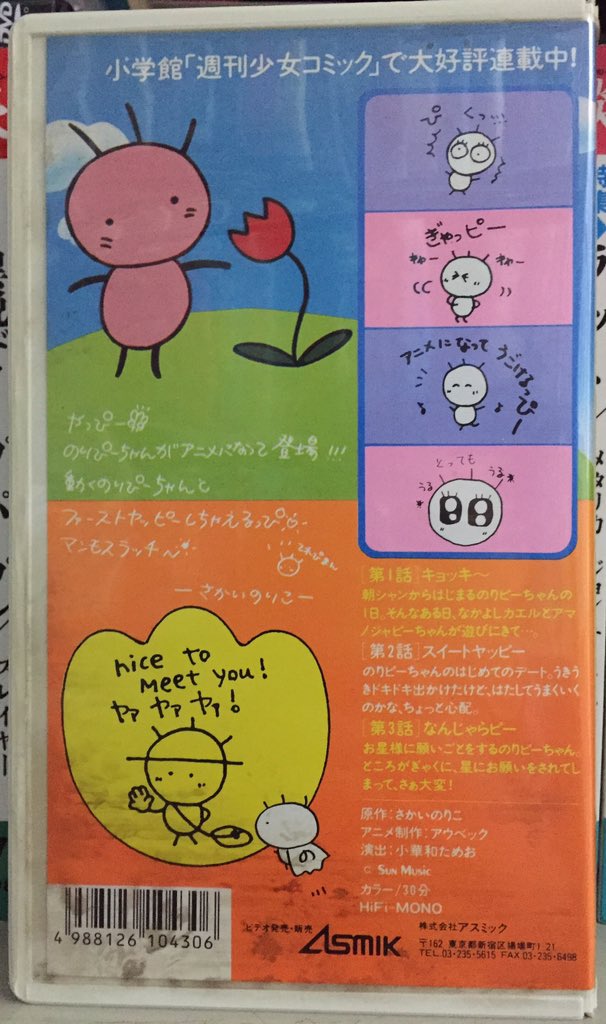 小学館「週刊少女コミック」で大好評連載中!
ぴくっ…
ぎゃっピー
きゃー
きゃー
アニメになって うごけるっぴー
とっても
うる
うる
やっぴー
のりぴーちゃんがアニメになって登場!!!
動くのりぴーちゃんと
ファーストヤッピーしちゃえるっぴ
マンモスラッチ〜
てれぴまん
—さかいのりこ—
nice to
Meet you!
ヤァ ヤァ ヤァ!
の
[第1話]キョッキ〜
朝シャンからはじまるのりピーちゃんの
1日。そんなある日、なかよしカエルとアマ
ノジャピーちゃんが遊びにきて…。
[第2話]スイートヤッピー
のりピーちゃんのはじめてのデート。うきう
きドキドキ出かけたけど、はたしてうまくいく
のかな、ちょっと心配。
[第3話]なんじゃらピー
お星様に願いごとをするのりピーちゃん。
ところがぎゃくに、星にお願いをされてし
まって、さぁ大変!
原作:さかいのりこ
アニメ制作:アウベック
演出:小華和ためお
© SUN MUSIC
カラー/30分
HiFi-MONO
4 988126 104306
ビデオ発売・販売
ASMIK
株式会社アスミック
〒162 東京都新宿区揚場町1-21
TEL.03-235-5615 FAX 03-235-6498